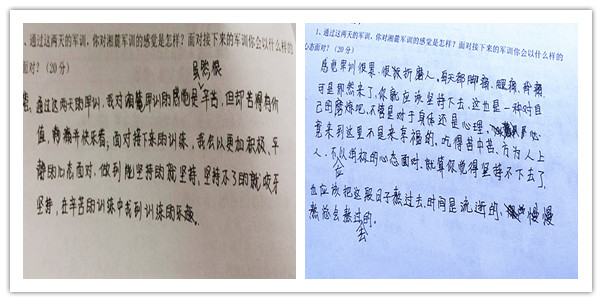 、通过这两天的军训，你对湘麓军训的感觉是怎样？面对接下来的军训你会以什么样的
面对？（20分）
虽然很
通过这两天的军训，我对湘麓军训的感觉是辛苦，但却苦得有价
值，疼痛并快乐着，面对接下来的训练，我会以更加积极、平
静的心态面对，做到能坚持的就坚持，坚持不了的就咬牙
坚持，在辛苦的训练中找到训练的乐趣。
1、通过这两天的军训，你对湘麓军训的感觉是怎样？面对接下来的军训你会以什么样的
心态面对？（20分）
感觉军训很累、很折磨人，每天都脚痛、腿痛、背痛
可是既然来了，你就应该坚持下去，这也是一种对自
己的磨炼吧，不管是对于身体还是心理，
竟来到这里不是来享福的，吃得苦中苦，方为人上
人，应以 的心态面对，就算你觉得坚持不下去了，
也应该把这段日子熬过去，时间是流逝的，慢慢
熬总会熬过的。